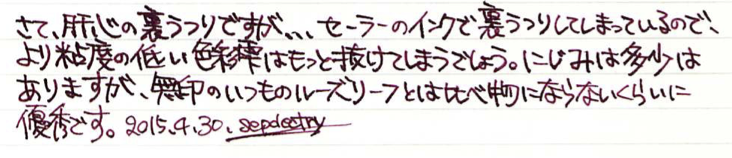 さて、肝心の裏うつりですが、、、セーラーのインクで裏うつりしてしまっているので、
より粘度の低い色彩雫はもっと抜けてしまうでしょう。にじみは多少は
ありますが、無印のいつものルーズリーフとは比べ物にならないくらいに
優秀です。2015.4.30.